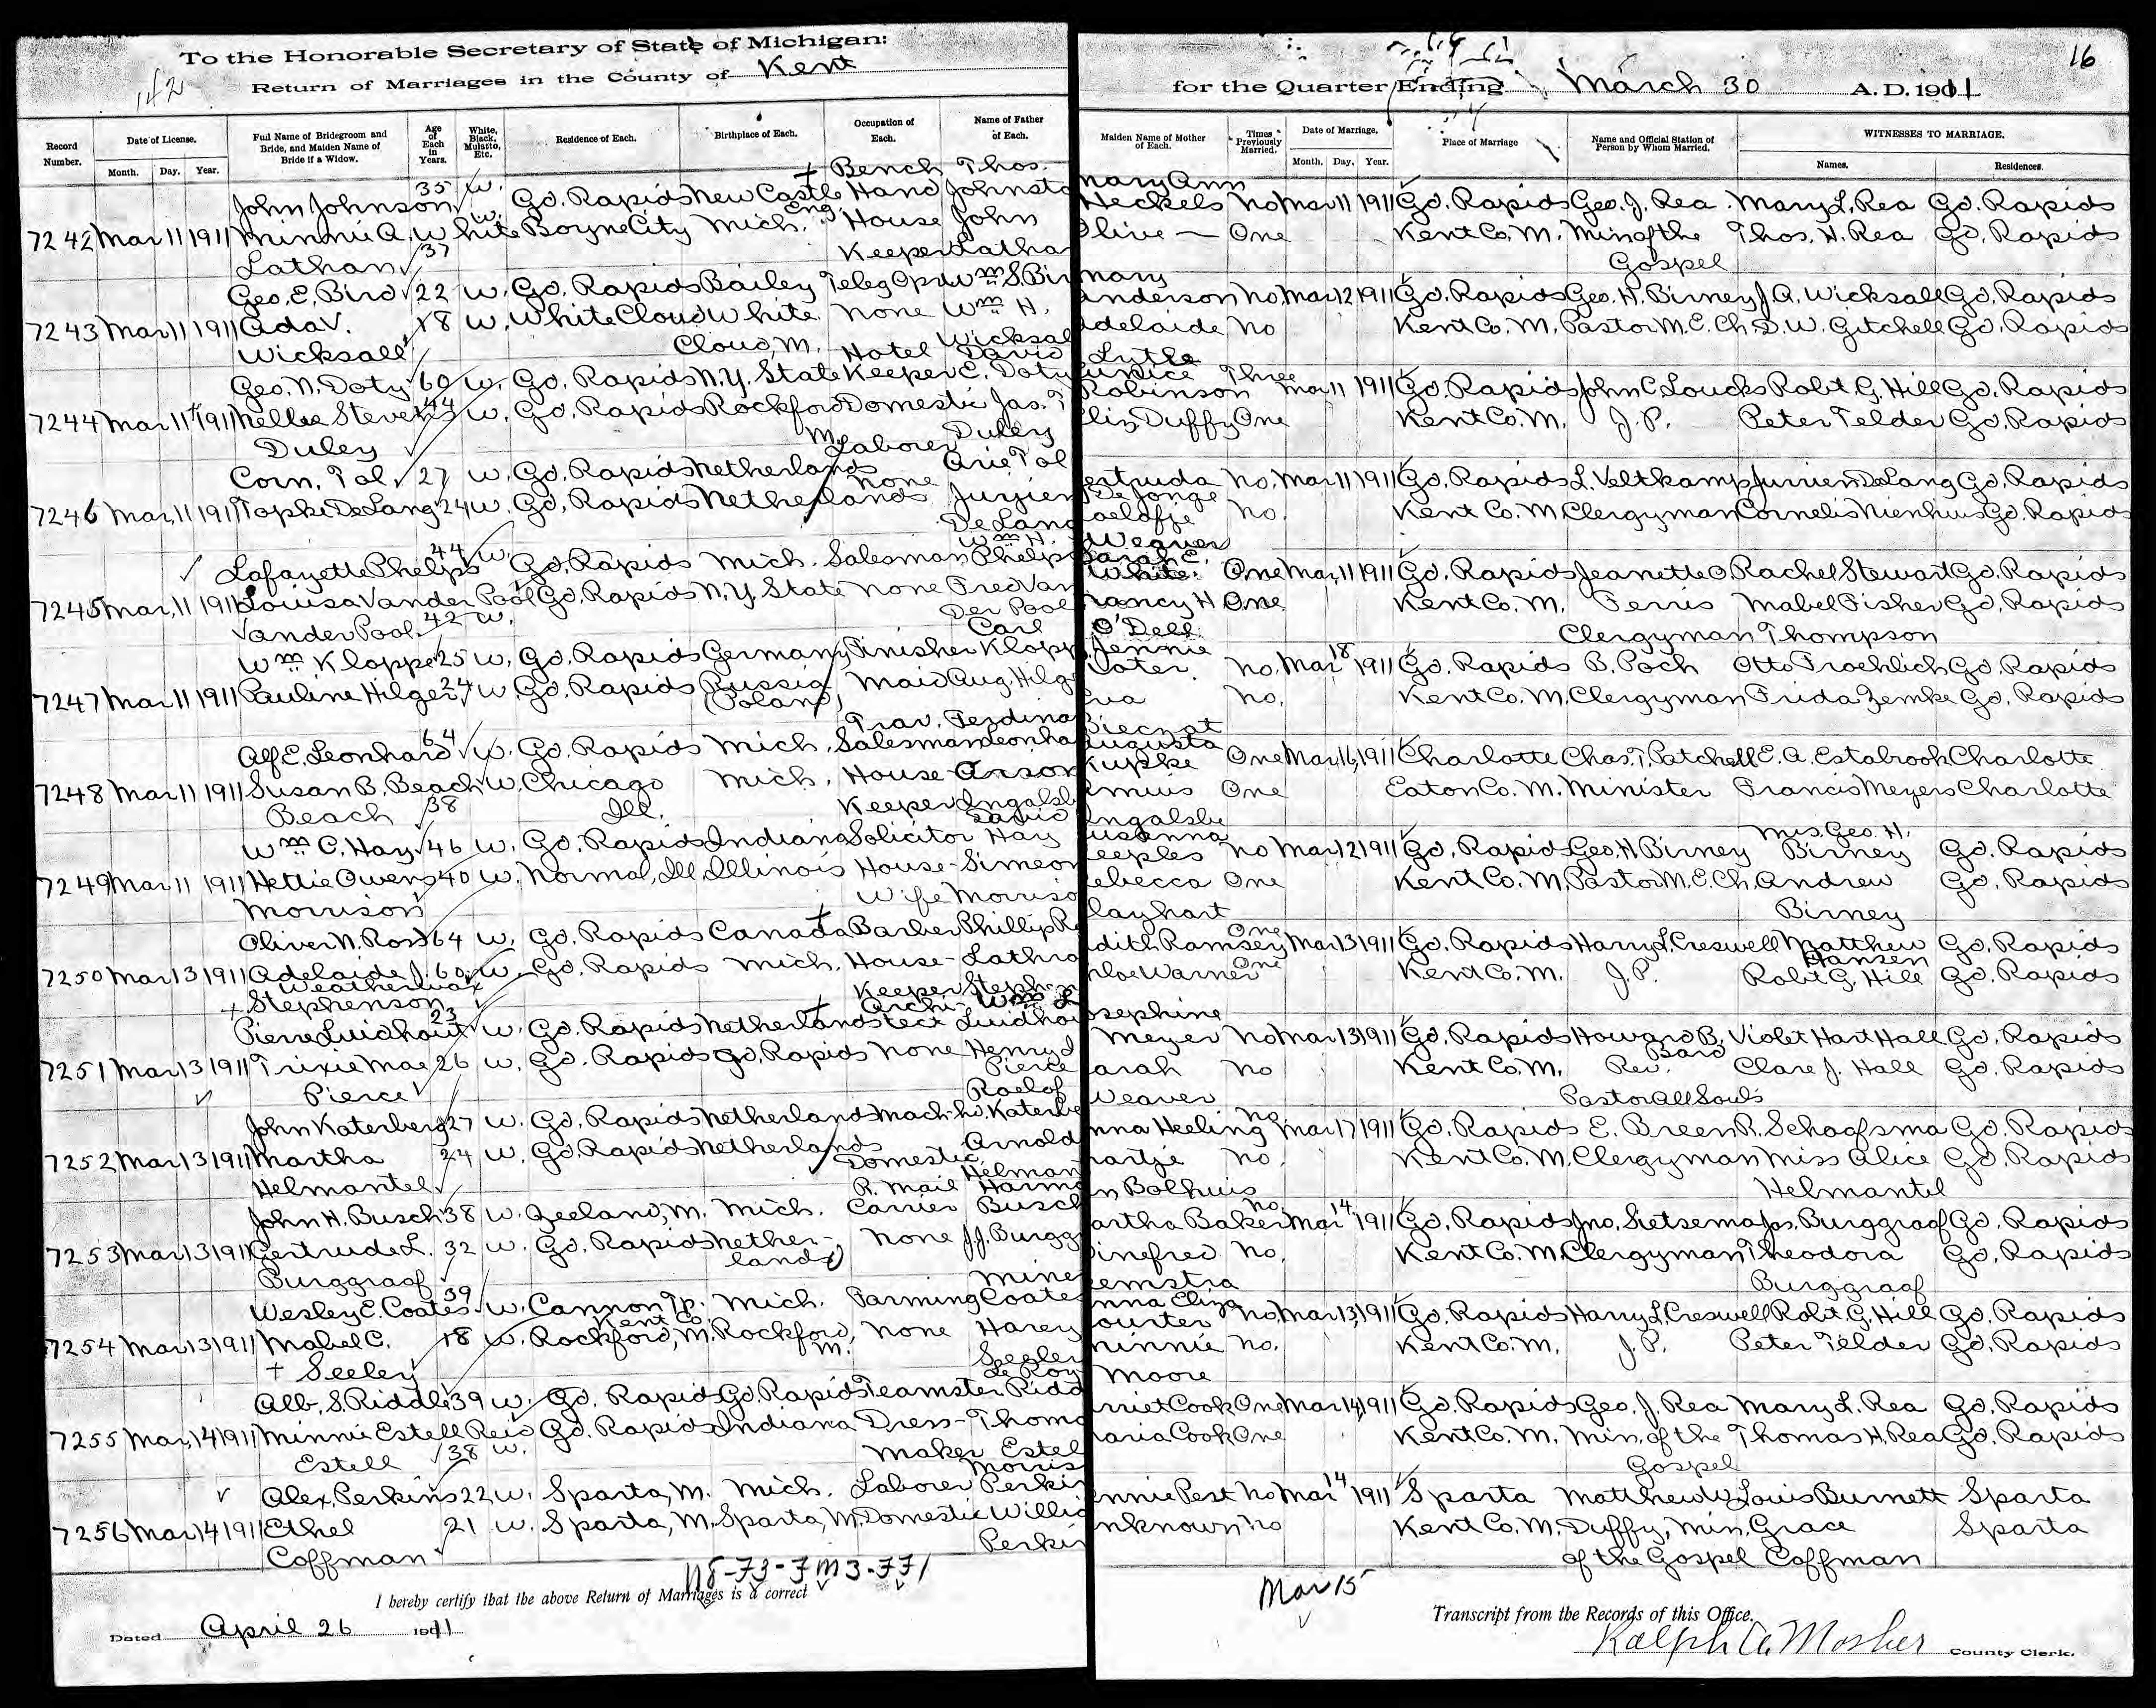 To the Honorable Secretary of State of Michigan:
Return of Marriages in the County of Kent
for the Quarter Ending March 30 A. D. 1911
16
142
Record Number.
Date of License.
Month. Day. Year.
Full Name of Bridegroom and Bride, and Maiden Name of Bride if a Widow.
Age of Each in Years.
White, Black, Mulatto, Etc.
Residence of Each.
Birthplace of Each.
Occupation of Each.
Name of Father of Each.
Maiden Name of Mother of Each.
Times Previously Married.
Date of Marriage.
Month. Day. Year.
Place of Marriage
Name and Official Station of Person by Whom Married.
WITNESSES TO MARRIAGE.
Names. Residences.
John Johnson 35 w. Gd. Rapids New Castle Eng Bench Hand Thos. Johnsto Mary Ann Heckels No Mar 11 1911 Gd. Rapids Geo. J. Rea Mary L. Rea Gd. Rapids
7242 Mar 11 1911 Minnie A. White w. Boyne City Mich. House Keeper John Latha Olive — One Kent Co. M. Min of the Gospel Thos. H. Rea Gd. Rapids
Lathan 37
Geo. E. Bird 22 w. Gd. Rapids Bailey Teleg Opr Wm S. Bir Mary Anderson No Mar 12 1911 Gd. Rapids Geo. H. Birney J. A. Wicksall Gd. Rapids
7243 Mar 11 1911 Ada V. 18 w. White Cloud White Cloud, M. None Wm H. Wicksal Adelaide No Kent Co. M. Pastor M. E. Ch. D. W. Gitchell Gd. Rapids
Wicksall Lytle
Geo. N. Doty 60 w. Gd. Rapids N.Y. State Hotel Keeper David E. Doty Eunice Robinson Three Mar 11 1911 Gd. Rapids John C. Loucks Robt. G. Hill Gd. Rapids
7244 Mar 11 1911 Nellie Stevens 44 w. Gd. Rapids Rockford M. Domestic Jas. T Duley Eliz Duffy One Kent Co. M. J. P. Peter Telder Gd. Rapids
Duley
Corn. Tol 27 w. Gd. Rapids Netherlands Laborer Arie Tol ertruda No. Mar 11 1911 Gd. Rapids L. Veltkamp Jurrien DeLang Gd. Rapids
7246 Mar. 11 1911 Tapke DeLang 24 w. Gd. Rapids Netherlands None Jurjen DeLang De Jonge No. Kent Co. M. Clergyman Cornelis Nienhuis Gd. Rapids
Weaver
Lafayette Phelps 44 w. Gd. Rapids Mich. Salesman Wm H. Phelps Sarah E. White. One Mar. 11 1911 Gd. Rapids Jeanette O. Rachel Stewart Gd. Rapids
7245 Mar. 11 1911 Louisa Vander Pool Gd. Rapids N.Y. State None Fred Van Der Pool Nancy H One Kent Co. M. Ferris Mabel Fisher Gd. Rapids
Vander Pool 42 w. O'Dell Clergyman Thompson
Wm Kloppe 25 w. Gd. Rapids Germany Finisher Carl Klopp Jennie Vater. No. Mar 18 1911 Gd. Rapids B. Poch Otto Froehlich Gd. Rapids
7247 Mar 11 1911 Pauline Hilger 24 w. Gd. Rapids Russia (Poland) Maid Aug. Hilge va No. Kent Co. M. Clergyman Frida Zemke Gd. Rapids
Alf E. Leonhard 64 w. Gd. Rapids Mich. Trav. Salesman Ferdina Leonha Augusta Kupke One Mar. 16, 1911 Charlotte Chas. T. Patchell E. A. Estabrook Charlotte
7248 Mar 11 1911 Susan B. Beach w. Chicago Ill. Mich. House Keeper Anson Ingalsb One Eaton Co. M. Minister Francis Meyers Charlotte
Beach 38 Ingalsbe
Wm C. Hay 46 w. Gd. Rapids Indiana Solicitor David Hay Susanna eeples No Mar 12 1911 Gd. Rapids Geo. H. Birney Mrs. Geo. H. Birney Gd. Rapids
7249 Mar 11 1911 Hettie Owens 40 w. Normal, Ill Illinois House-Wife Simeon Morriso ebecca One Kent Co. M. Pastor M. E. Ch. Andrew Birney Gd. Rapids
Morrison layhart
Oliver N. Ross 64 w. Gd. Rapids Canada Barber Phillip Ro dith Ramsey One Mar 13 1911 Gd. Rapids Harry L. Creswell Matthew Hansen Gd. Rapids
7250 Mar 13 1911 Adelaide J. Weatherwax 60 w. Gd. Rapids Mich. House-Keeper Lathro Steph hloe Warner One Kent Co. M. J. P. Robt G. Hill Gd. Rapids
+ Stephenson
Pierre Luidhout 23 w. Gd. Rapids Netherlands Archi-tect Wm L Luidhou osephine Meyer No Mar 13 1911 Gd. Rapids Howard B. Bard Violet Hart Hall Gd. Rapids
7251 Mar 13 1911 Trixie Mae 26 w. Gd. Rapids Gd. Rapids None Henry J Pierce arah No Kent Co. M. Rev. Clare J. Hall Gd. Rapids
Pierce Weaver Pastor All Souls
John Katerberg 27 w. Gd. Rapids Netherlands Mach-hd. Roelof Katerbe nna Heeling No Mar 17 1911 Gd. Rapids E. Breen R. Schaafsma Gd. Rapids
7252 Mar 13 1911 Martha 24 w. Gd. Rapids Netherlands Domestic Arnold Helman artje No. Kent Co. M. Clergyman Miss Alice Helmantel Gd. Rapids
Helmantel n Bolhuis
John H. Busch 38 w. Zeeland, M. Mich. R. Mail Carrier Harm Busch artha Baker No Mar 14 1911 Gd. Rapids Jno. Sietsema Jas. Burggraaf Gd. Rapids
7253 Mar 13 1911 Gertrude L. 32 w. Gd. Rapids Nether-lands None J. J. Burgg inefred No. Kent Co. M. Clergyman Theodora Burggraaf Gd. Rapids
Burggraaf emstra
Wesley E. Coates 39 w. Cannon Tp. Kent Co. Mich. Farming Miner Coates nna Eliza ourter No. Mar 13, 1911 Gd. Rapids Harry L. Creswell Robt. G. Hill Gd. Rapids
7254 Mar 13 1911 Mabel C. 18 w. Rockford, M. Rockford, M. None Harry Seeley Minnie No. Kent Co. M. J. P. Peter Telder Gd. Rapids
+ Seeley Moore
Alb. S. Riddle 39 w. Gd. Rapids Gd. Rapids Teamster Le Roy Ridd rriet Cook One Mar 14, 1911 Gd. Rapids Geo. J. Rea Mary L. Rea Gd. Rapids
7255 Mar. 14 1911 Minnie Estell Reid Gd. Rapids Indiana Dress-Maker Thoma Estel aria Cook One Kent Co. M. Min. of the Gospel Thomas H. Rea Gd. Rapids
Estell 38 w.
Alex. Perkins 22 w. Sparta, M. Mich. Laborer Morris Perkin nnie Pest No Mar 14 1911 Sparta Matthew Louis Burnett Sparta
7256 Mar 14 1911 Ethel 21 w. Sparta, M. Sparta, M. Domestic Willia Perkin nknown No Kent Co. M. Duffy, Min. Grace Sparta
Coffman of the Gospel Coffman
I hereby certify that the above Return of Marriages is a correct
Mar 15
Transcript from the Records of this Office.
Dated April 26 1911
Ralph A. Mosher County Clerk.